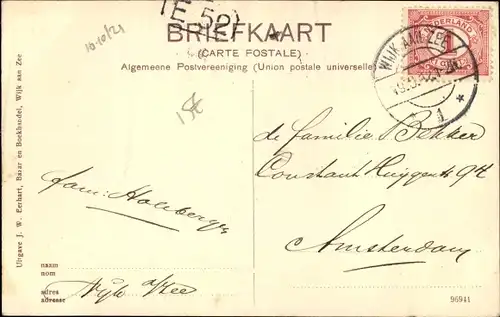 10/10/21
E 52
BRIEFKAART
(CARTE POSTALE)
Algemeene Postvereeniging (Union postale universelle)
NEDERLAND
WIJK AAN ZEE
1
15€
de familie Bekker
Constant Huygenstr 94
Amsterdam
fam: Holtberger
naam
nom
adres
adresse
Wijk a/Zee
96941
Uitgave J. W. Eerhart, Bazar en Boekhandel, Wijk aan Zee